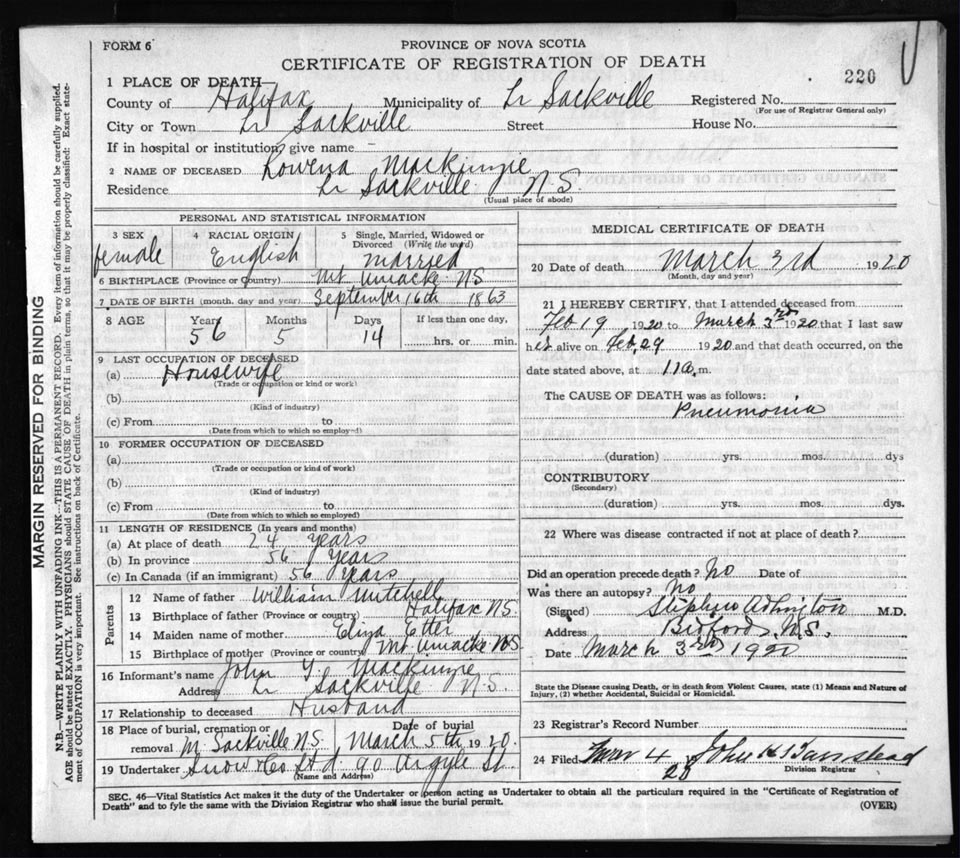 FORM 6
PROVINCE OF NOVA SCOTIA
CERTIFICATE OF REGISTRATION OF DEATH
220
1 PLACE OF DEATH—
County of Halifax Municipality of Lr Sackville Registered No.
(For use of Registrar General only)
City or Town Lr Sackville Street House No.
If in hospital or institution, give name –
2 NAME OF DECEASED Rowena Mackinzie
Residence Lr Sackville N.S.
(Usual place of abode)
PERSONAL AND STATISTICAL INFORMATION
3 SEX 4 RACIAL ORIGIN 5 Single, Married, Widowed or
Divorced (Write the word)
female English married
6 BIRTHPLACE (Province or Country) Mt Uniacke NS
7 DATE OF BIRTH (month, day and year) September 16th 1863
8 AGE Years Months Days If less than one day,
56 5 14 hrs. or min.
9 LAST OCCUPATION OF DECEASED
(a) Housewife
(Trade or occupation or kind or work)
(b)
(Kind of industry)
(c) From to
(Date from which to which so employed)
10 FORMER OCCUPATION OF DECEASED
(a)
(Trade or occupation or kind of work)
(b)
(Kind of industry)
(c) From to
(Date from which to which so employed)
11 LENGTH OF RESIDENCE (In years and months)
(a) At place of death 24 years
(b) In province 56 years
(c) In Canada (if an immigrant) 56 years
Parents
12 Name of father William Mitchell
13 Birthplace of father (Province or country) Halifax N.S.
14 Maiden name of mother Eliza Etter
15 Birthplace of mother (Province or country) Mt Uniacke N.S
16 Informant's name John Y. Mackinzie
Address Lr Sackville N.S.
17 Relationship to deceased Husband
18 Place of burial, cremation or Date of burial
removal M. Sackville N.S. March 5th 1920.
19 Undertaker Snow & Co Ltd 90 Argyle St.
(Name and Address)
MEDICAL CERTIFICATE OF DEATH
20 Date of death March 3rd 1920
(Month, day and year)
21 I HEREBY CERTIFY, that I attended deceased from
Feb 19 1920 to March 3rd 1920 that I last saw
her alive on Feb, 29 1920 and that death occurred, on the
date stated above, at 11a. m.
The CAUSE OF DEATH was as follows:
Pneumonia
(duration) yrs. mos. dys
CONTRIBUTORY
(Secondary)
(duration) yrs. mos. dys.
22 Where was disease contracted if not at place of death?
Did an operation precede death? No Date of
Was there an autopsy? No
(Signed) M.D.
Address Bidford, N.S.
Date March 3rd 1920
State the Disease causing Death, or in death from Violent Causes, state (1) Means and Nature of
Injury, (2) whether Accidental, Suicidal or Homicidal.
23 Registrar's Record Number
24 Filed Mar 4 John H
20 Division Registrar
SEC. 46—Vital Statistics Act makes it the duty of the Undertaker or person acting as Undertaker to obtain all the particulars required in the "Certificate of Registration of
Death" and to fyle the same with the Division Registrar who shall issue the burial permit.
(OVER)
MARGIN RESERVED FOR BINDING
N.B.—WRITE PLAINLY WITH UNFADING INK—THIS IS A PERMANENT RECORD. Every item of information should be carefully supplied.
AGE should be stated EXACTLY. PHYSICIANS should STATE CAUSE OF DEATH in plain terms, so that it may be properly classified: Exact state-
ment of OCCUPATION is very important. See instructions on back of Certificate.